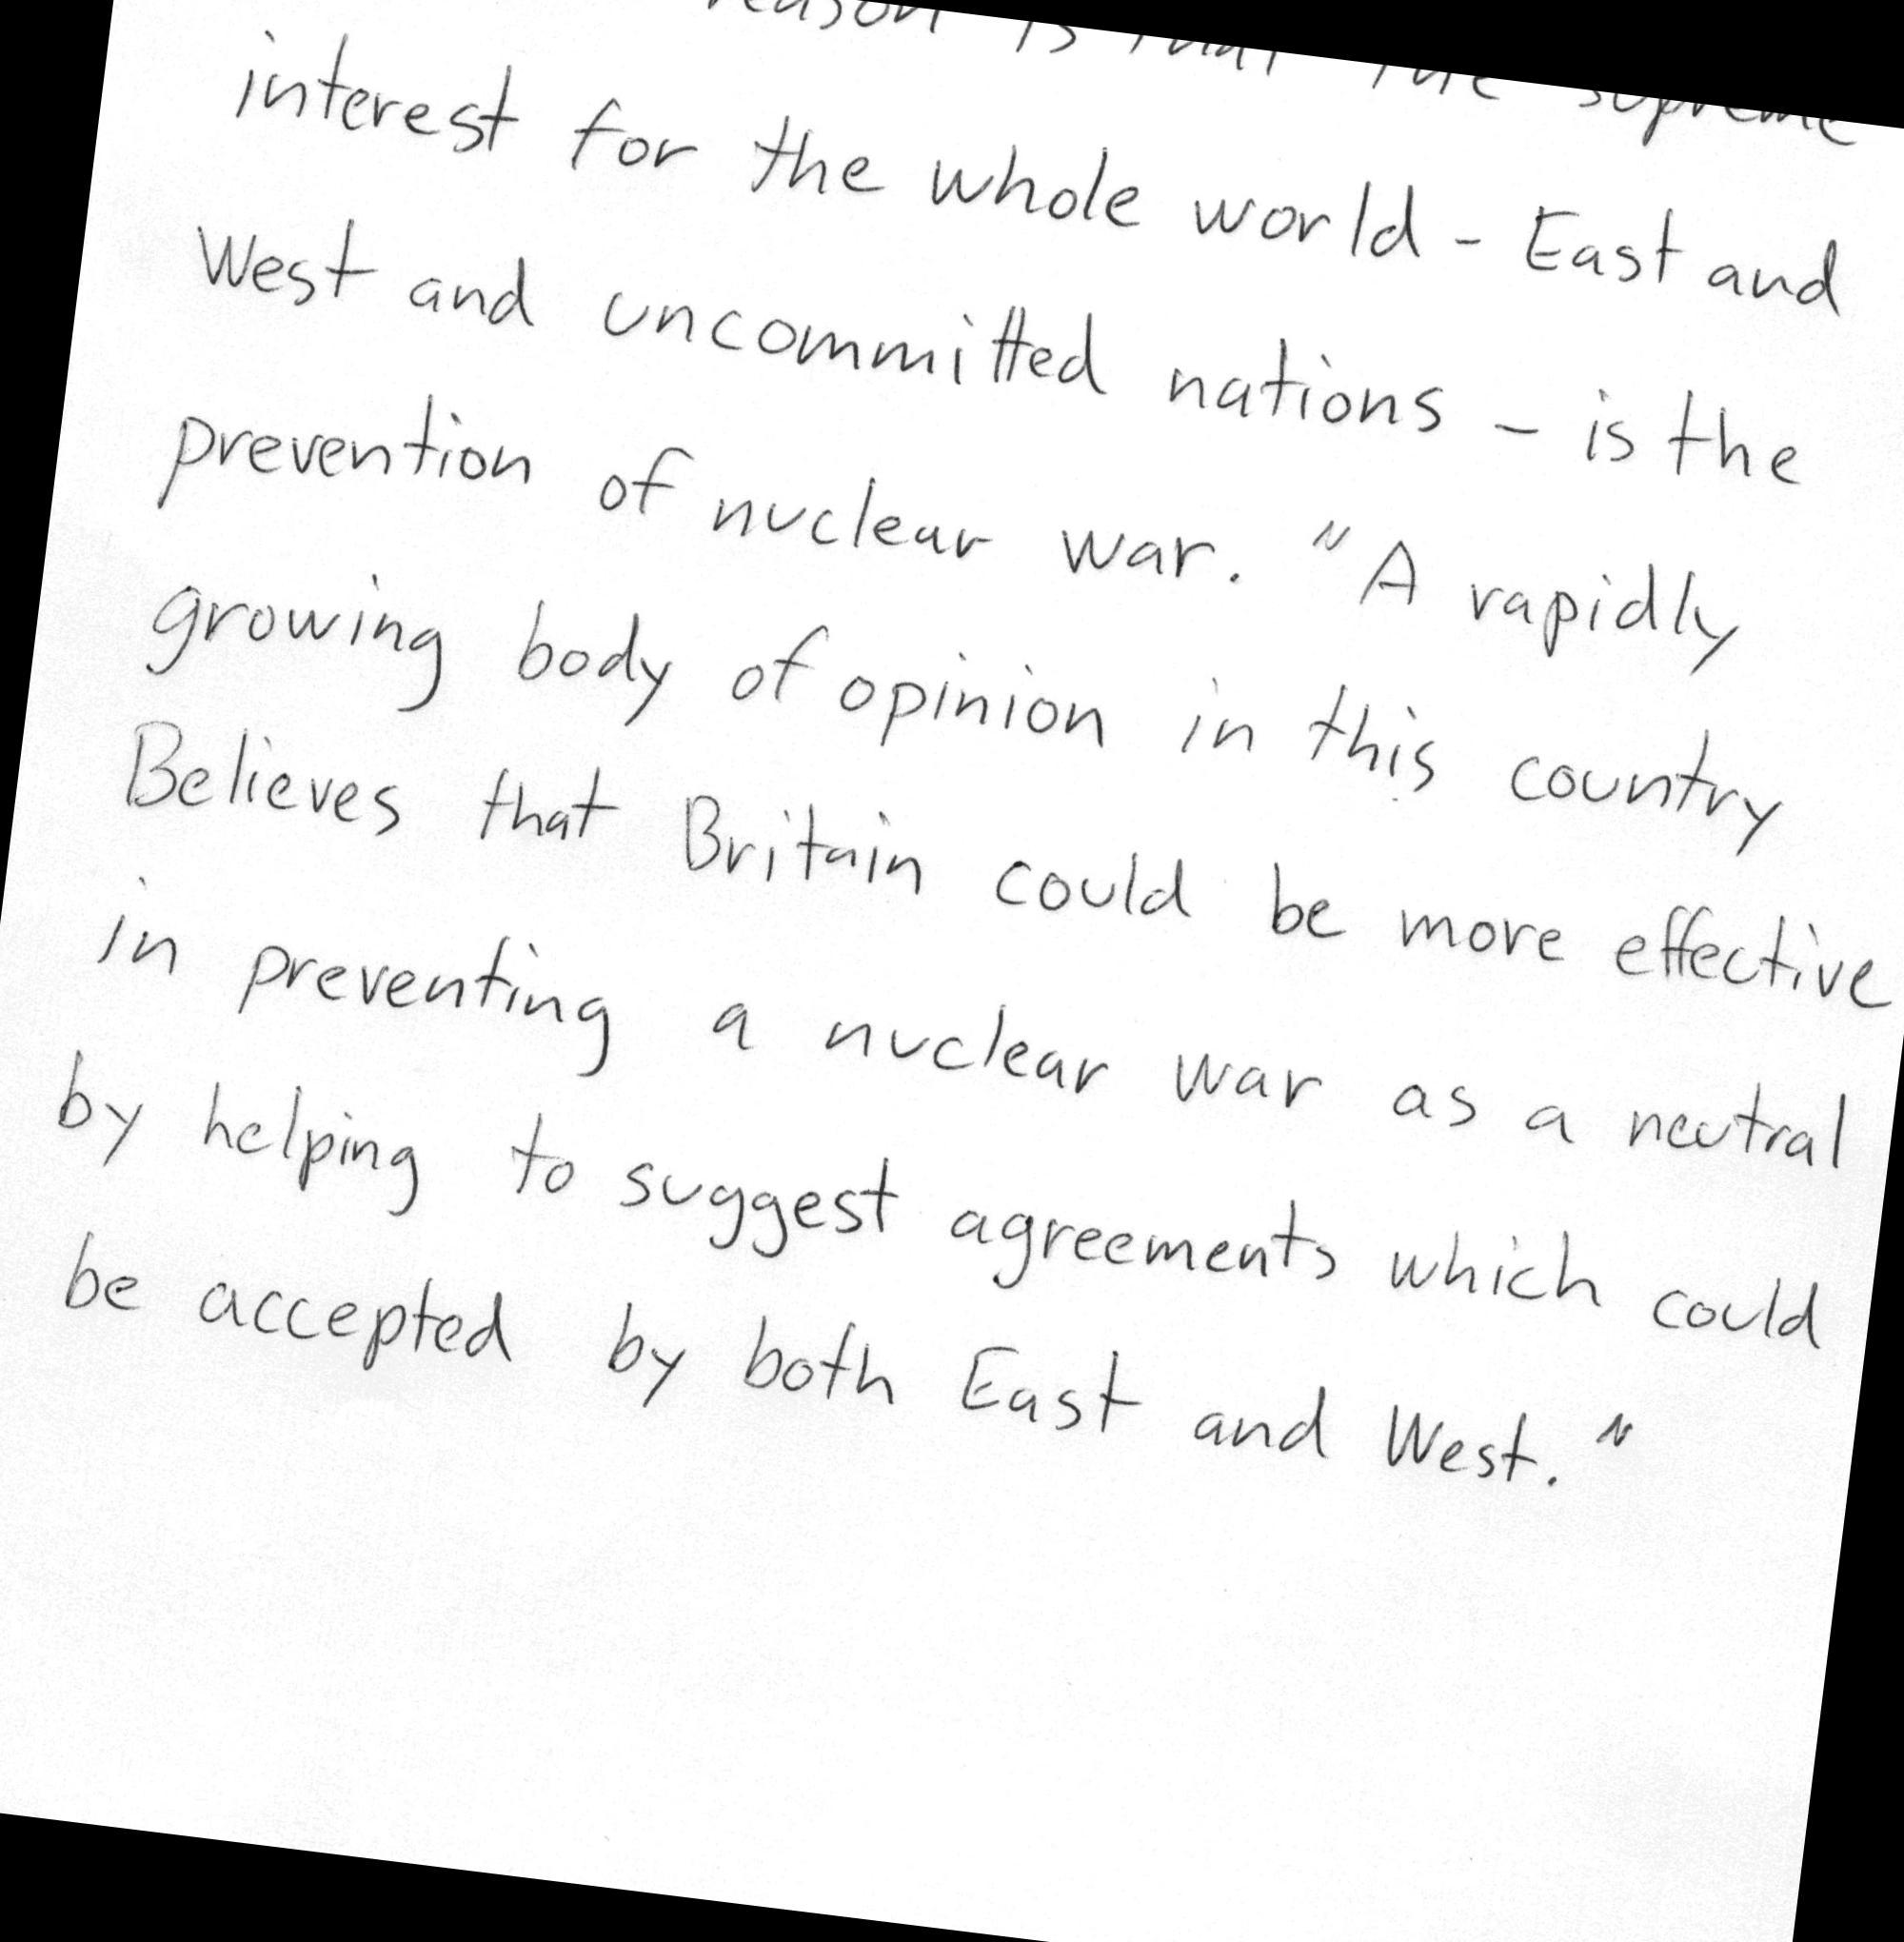 reason is that the supreme
interest for the whole world - East and
West and uncommitted nations - is the
prevention of nuclear war. "A rapidly
growing body of opinion in this country
Believes that Britain could be more effective
in preventing a nuclear war as a neutral
by helping to suggest agreements which could
be accepted by both East and West."